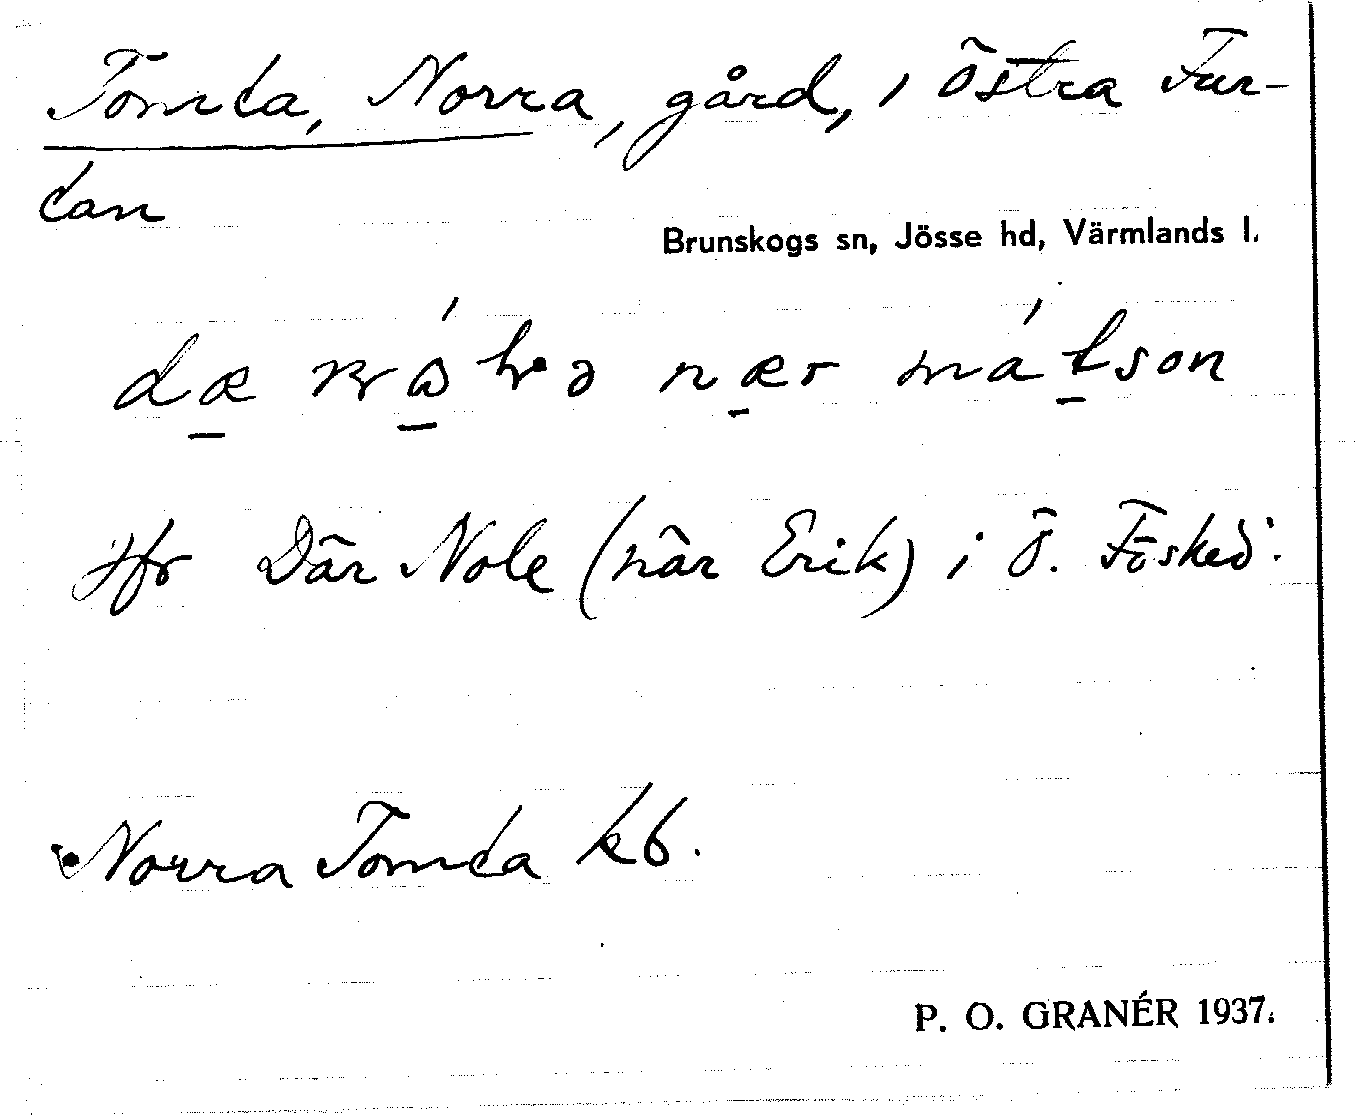 Tomta, Norra, gård, i östra Fur-
tan
Brunskogs sn, Jösse hd, Värmlands l.
dæ nær matson
Jfr Där Nole (när Erik) i Ö. Fösked.
Norra Tomta kb.
P. O. GRANÉR 1937.